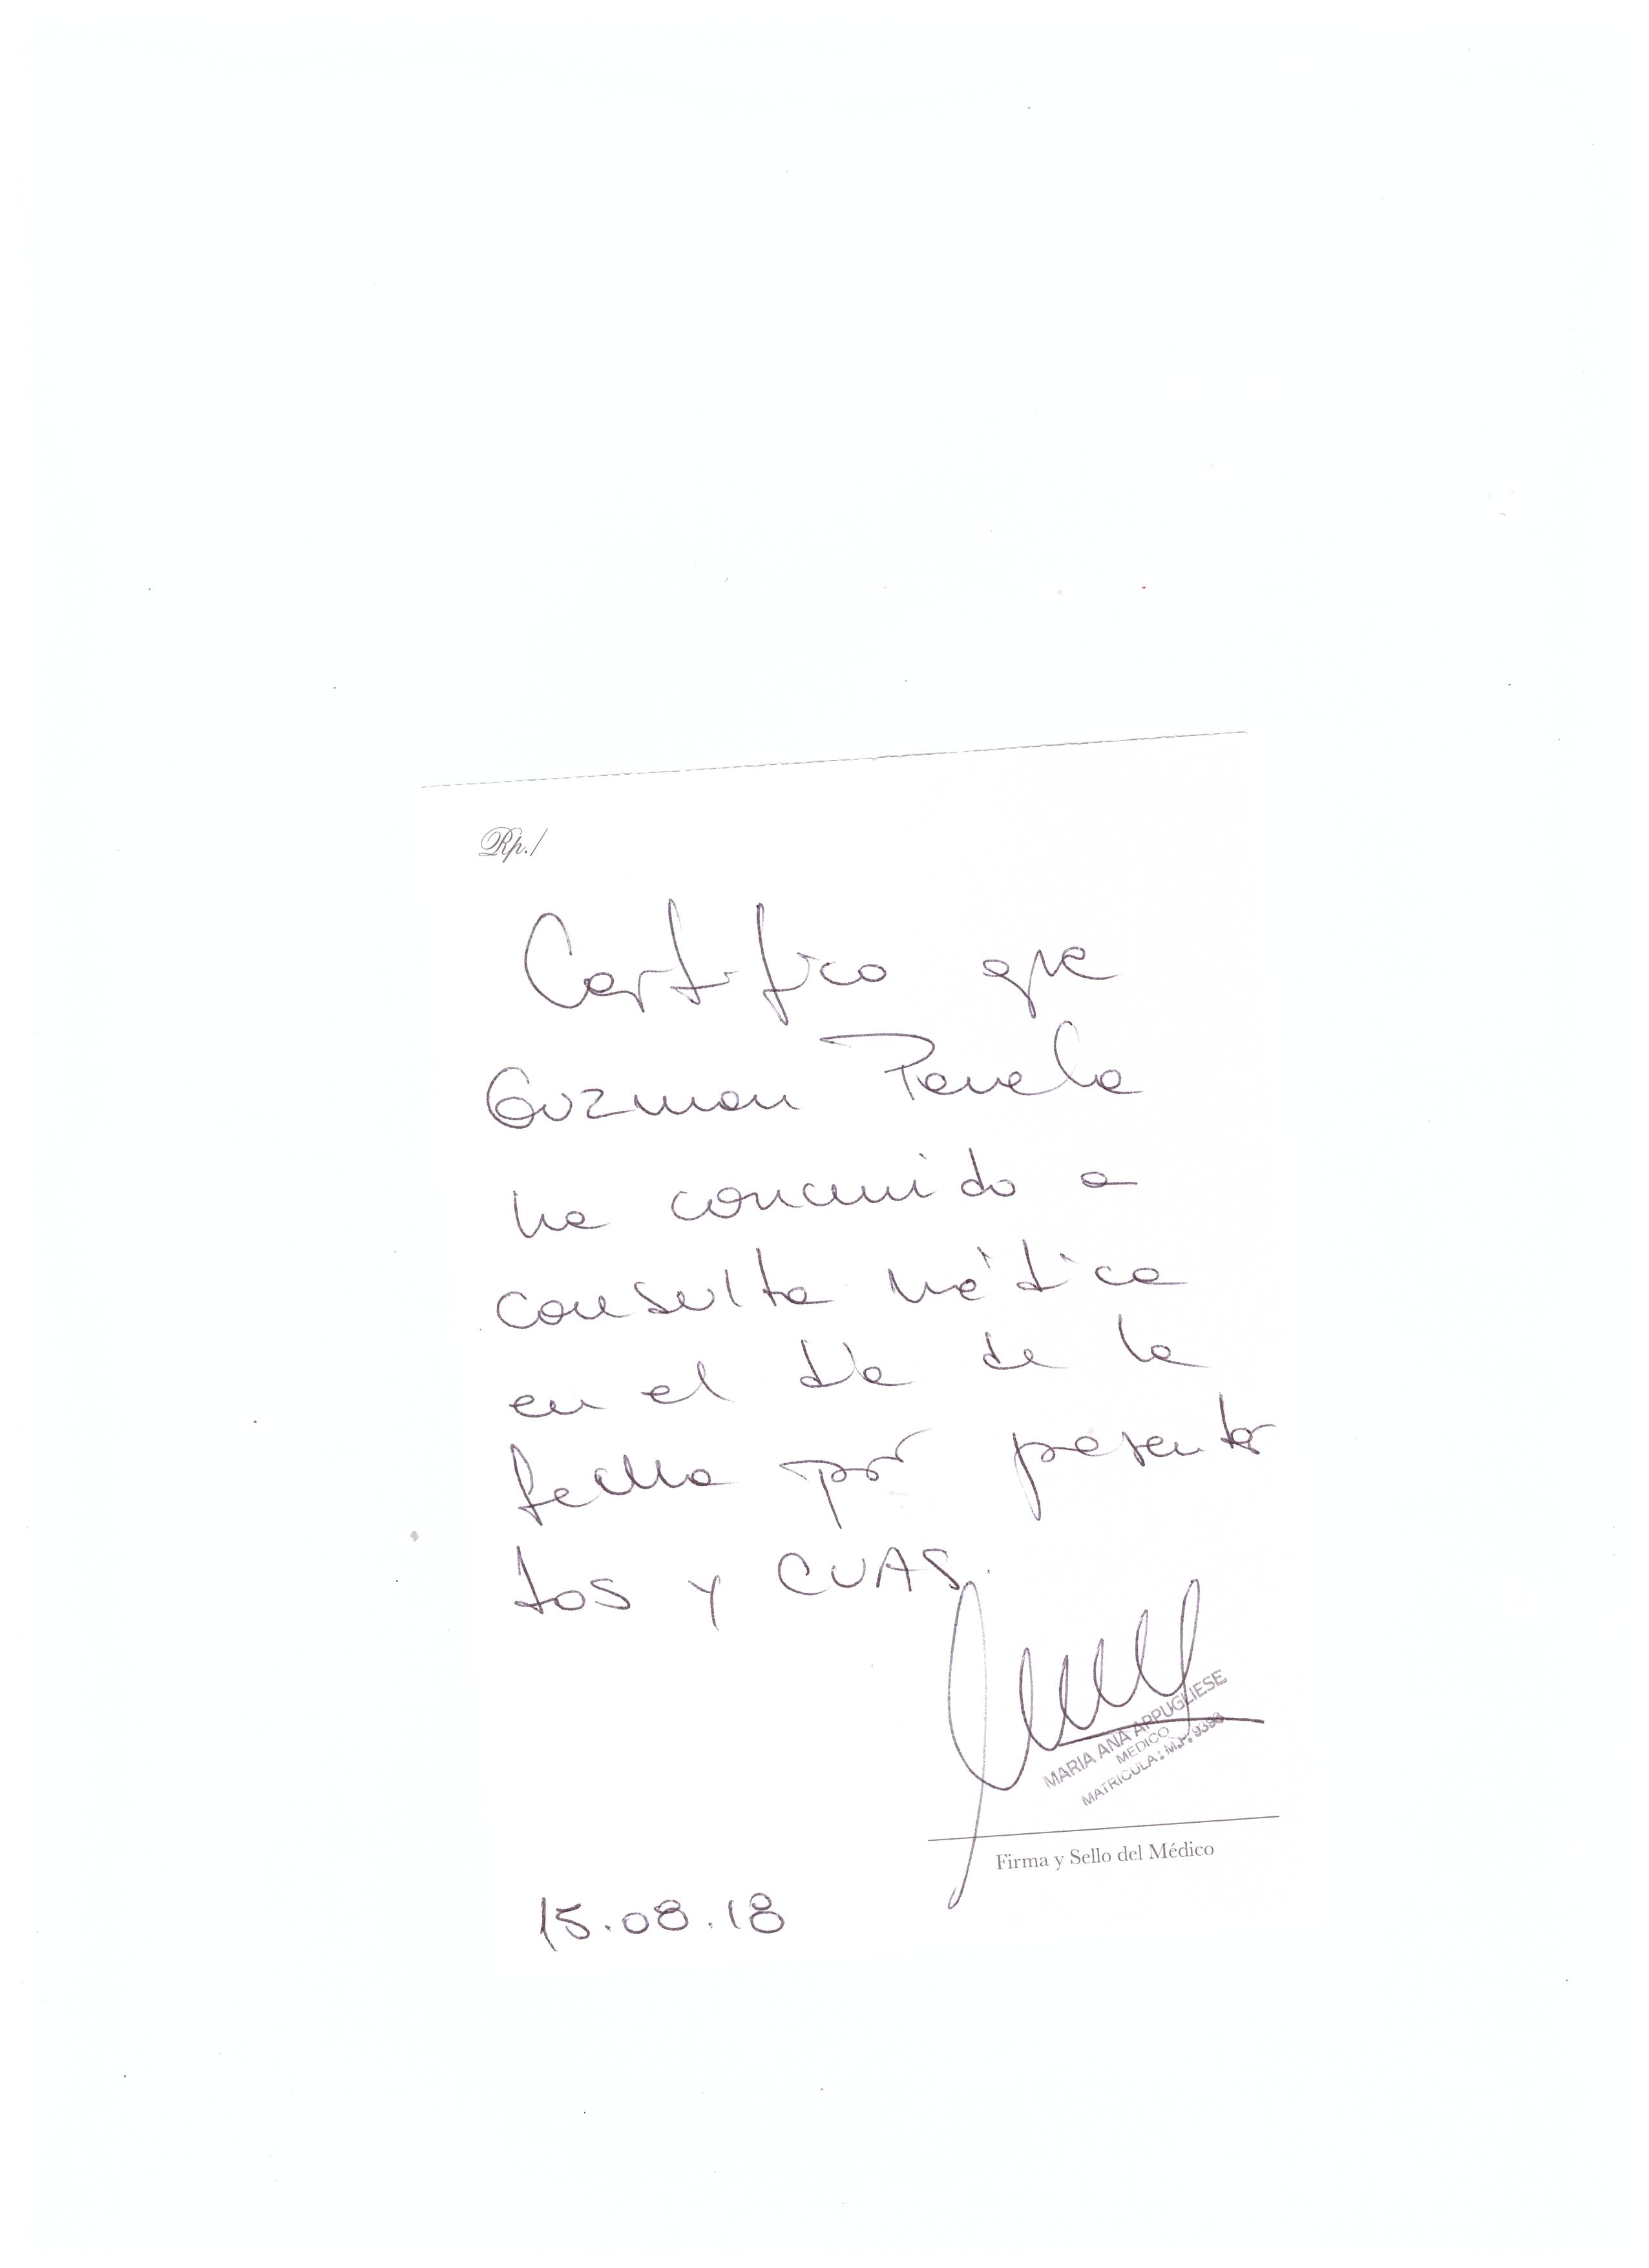 Rp./
Certifico que
Guzman Pamela
ha concurrido a
consulta médica
en el día de la
fecha por presentar
tos y CVAS.
MARIA ANA APPUGLIESE
MEDICO
MATRICULA: M.P. 9396
Firma y Sello del Médico
15.08.18